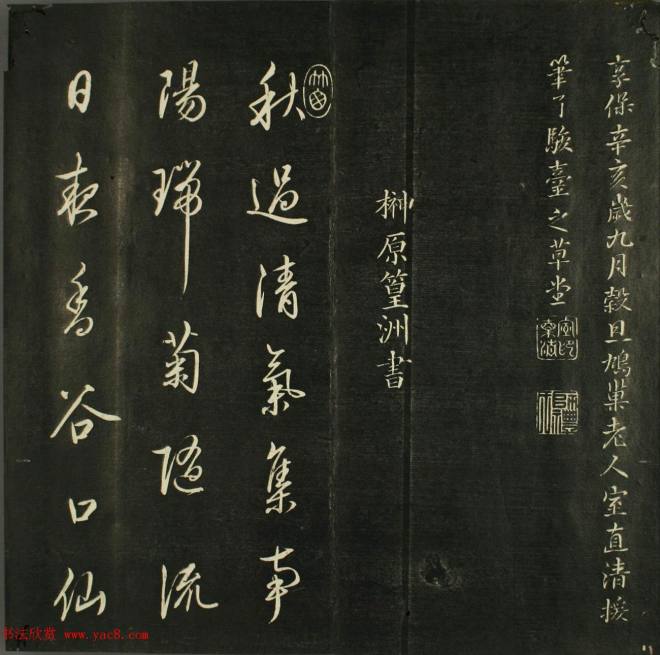 享保辛亥歲九月穀旦鳩巢老人室直清援
筆了駿臺之草堂
榊原篁洲書
秋過清氣集
陽瑞菊隨流
日夜香谷口仙
书法欣赏 www.yac8.com